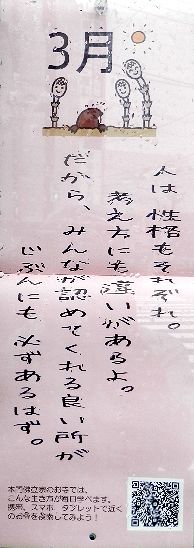 3月
人は 性格もそれぞれ。
考え方にも違いがあるよ。
だから、みんなが認めてくれる良い所が
じぶんにも 必ずあるはず。
本門佛立宗のお寺では、
こんな生き方が毎日学べます。
携帯、スマホ、タブレットで近く
のお寺を検索してみよう！